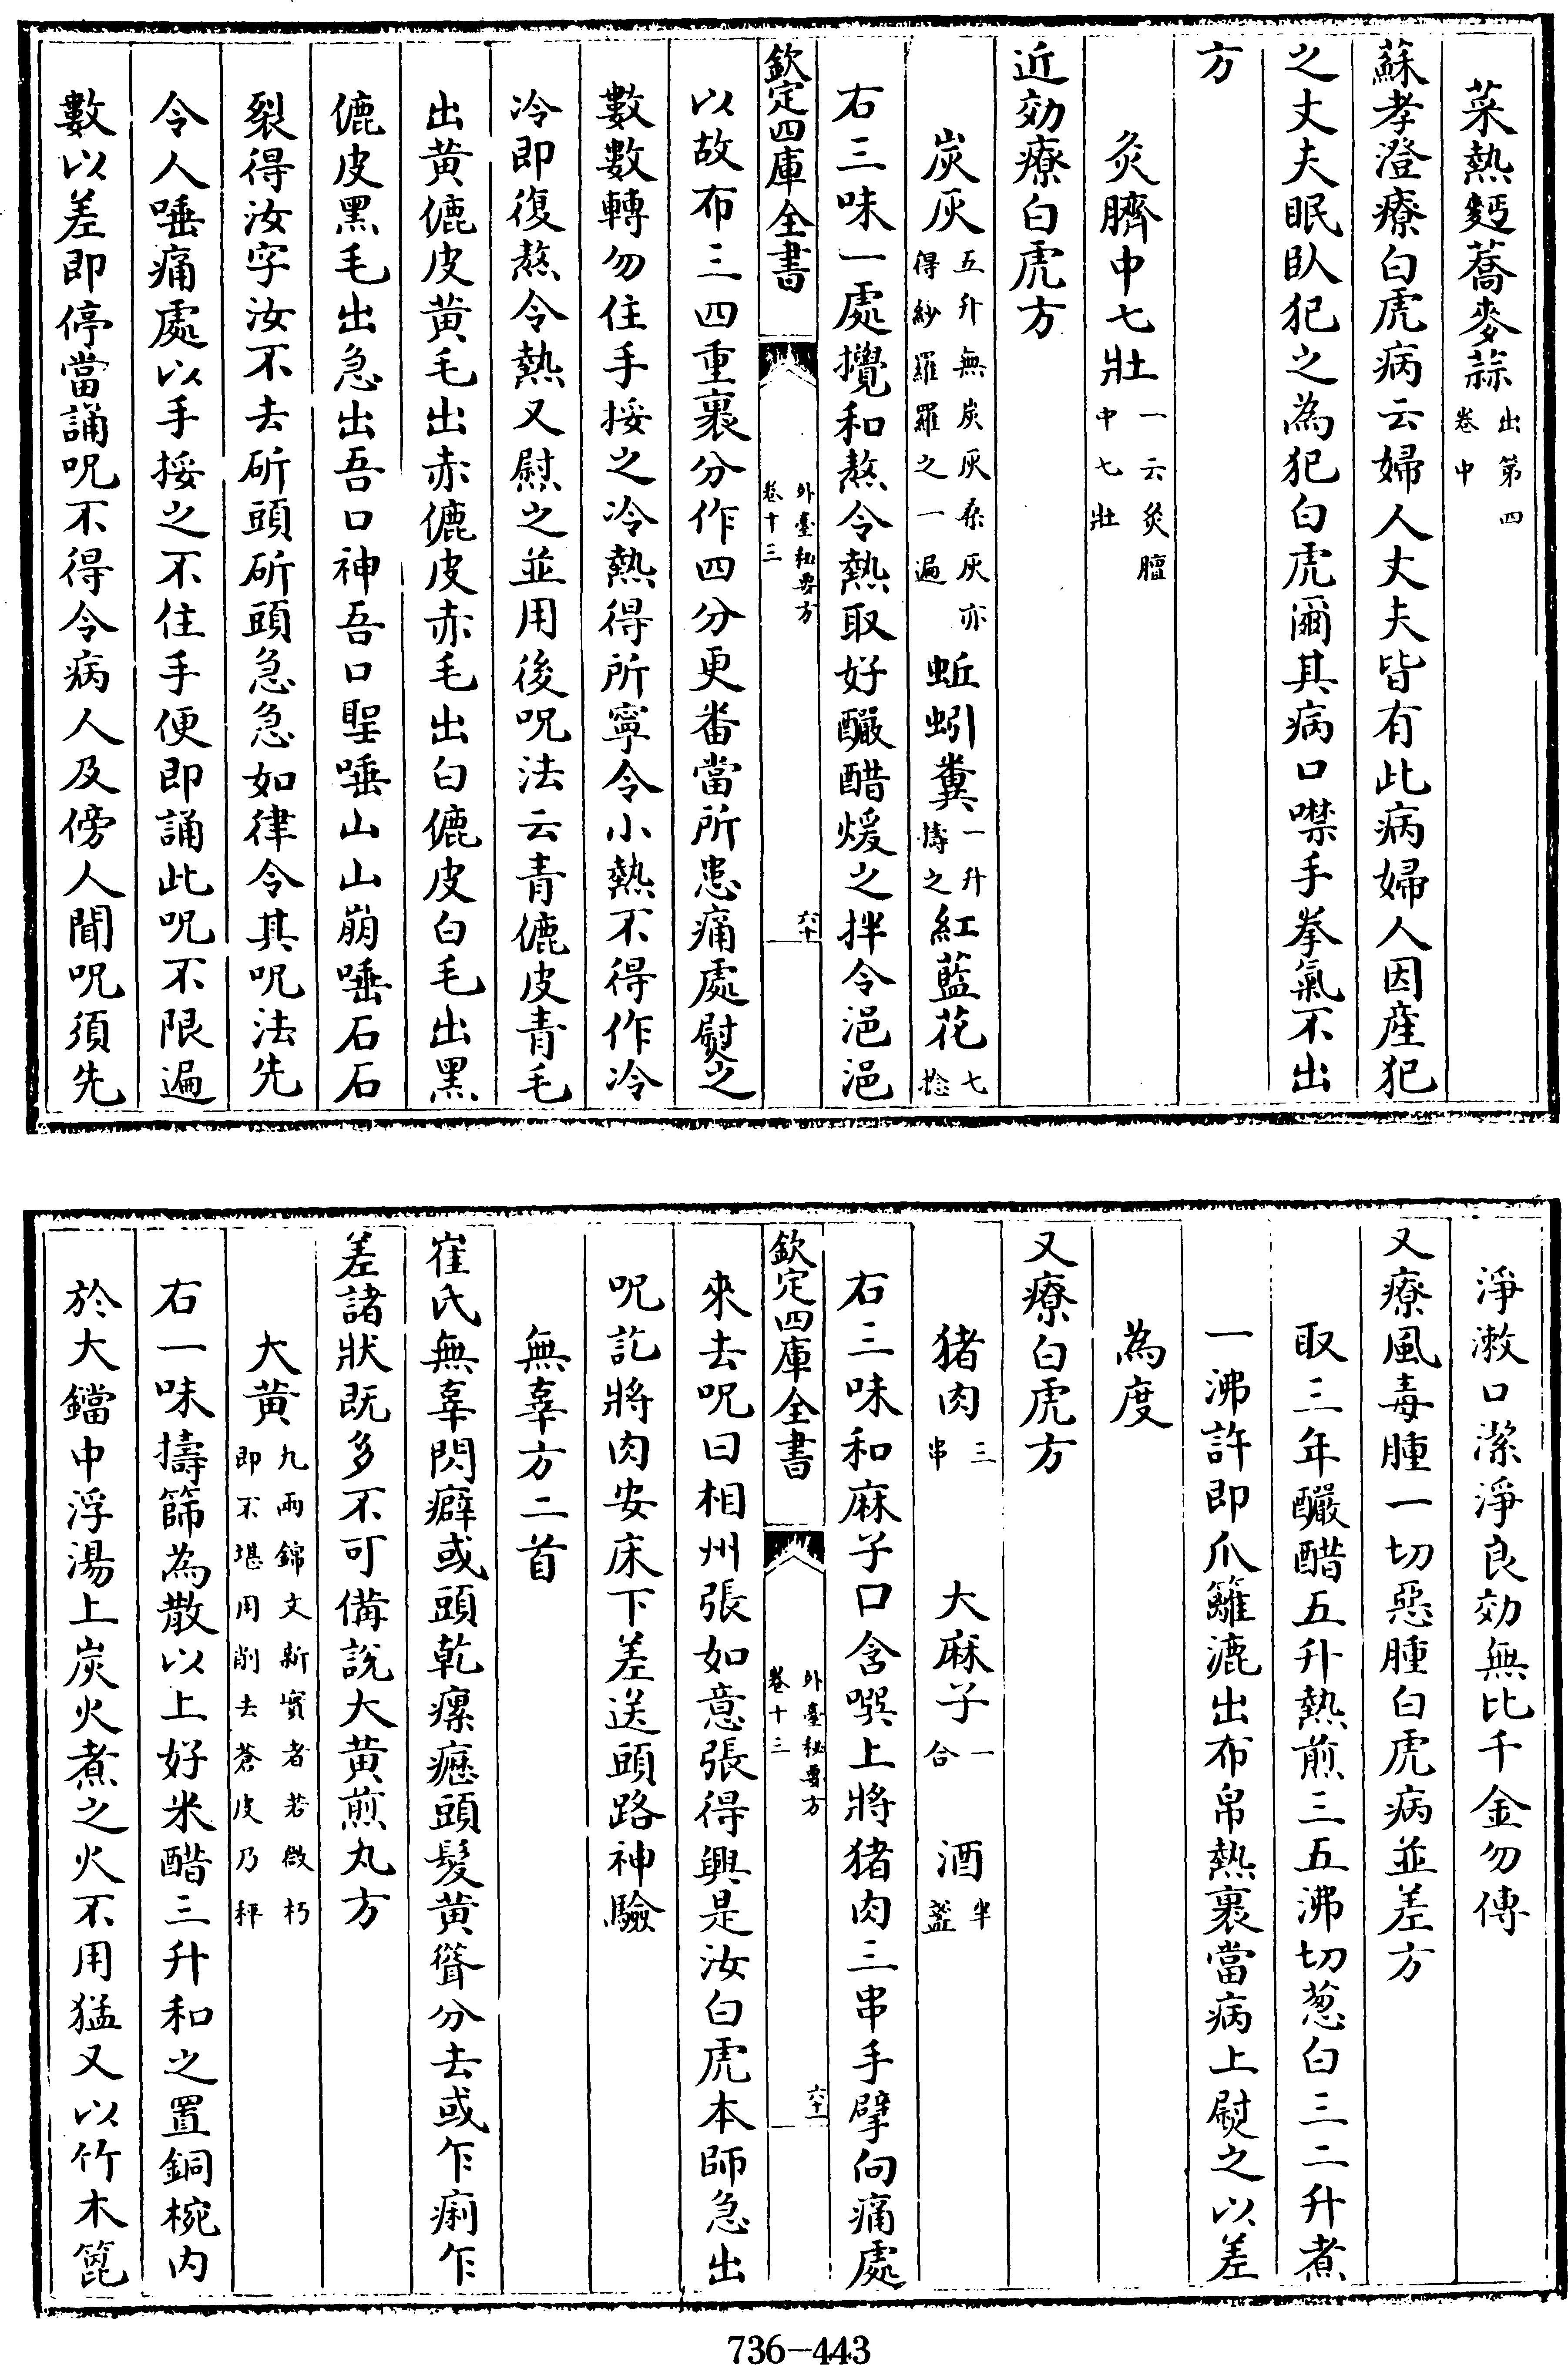 菜熱麪蕎麥蒜出第四卷中
蘇孝澄療白虎病云婦人丈夫皆有此病婦人因產犯
之丈夫眠臥犯之為犯白虎爾其病口噤手拳氣不出
方
灸臍中七壯一云灸膻中七壯
近効療白虎方
炭灰五升無炭灰桑灰亦得紗羅羅之一遍 蚯蚓糞一升擣之 紅藍花七捻
右三味一處攪和熬令熱取好釅醋煖之拌令浥浥
欽定四庫全書 外臺秘要方卷十三 六十
以故布三四重裹分作四分更番當所患痛處熨之
數數轉勿住手挼之冷熱得所寧令小熱不得作冷
冷即復熬令熱又慰之並用後呪法云青儢皮青毛
出黃儢皮黃毛出赤儢皮赤毛出白儢皮白毛出黑
儢皮黑毛出急出吾口神吾口聖唾山山崩唾石石
裂得汝字汝不去斫頭斫頭急急如律令其呪法先
令人唾痛處以手挼之不住手便即誦此呪不限遍
數以差即停當誦呪不得令病人及傍人聞呪須先
淨漱口潔淨良効無比千金勿傳
又療風毒腫一切惡腫白虎病並差方
取三年釅醋五升熱煎三五沸切葱白三二升煮
一沸許即爪籬漉出布帛熱裹當病上熨之以差
為度
又療白虎方
猪肉三串 大麻子一合 酒半盞
右三味和麻子口含噀上將猪肉三串手擘向痛處
欽定四庫全書 外臺秘要方卷十三 六十一
來去呪曰相州張如意張得興是汝白虎本師急出
呪訖將肉安床下差送頭路神驗
無辜方二首
崔氏無辜閃癖或頭乾瘰癧頭髮黃聳分去或乍痢乍
差諸狀既多不可備說大黃煎丸方
大黃九兩錦文新實者若微朽即不堪用削去蒼皮乃秤
右一味擣篩為散以上好米醋三升和之置銅椀內
於大鐺中浮湯上炭火煮之火不用猛又以竹木篦
736-443